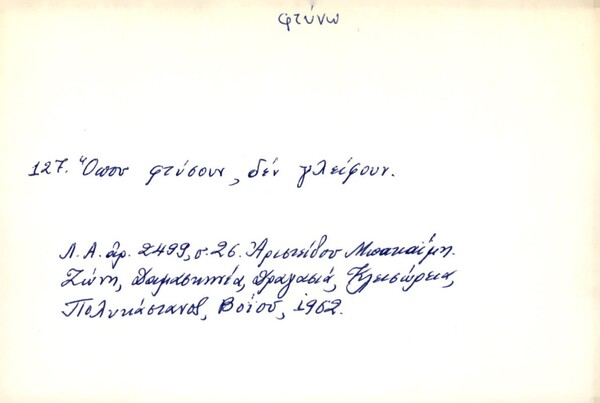 φτύνω
127. Ὅπου φτύσουν, δέν γλείφουν.
Λ.Α. ἀρ. 2499, σ. 26. Ἀριστείδου Μπακαΐμη.
Ζώνη, Δαμασκηνιά, Δραγασιά, Κλεισώρεια,
Πολυκάστανος, Βοΐου, 1962.